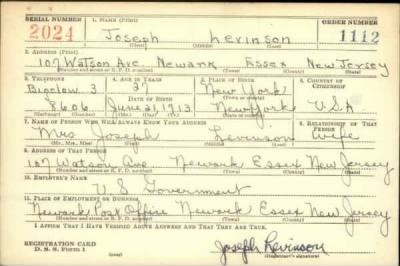 SERIAL NUMBER 1. NAME (Print) ORDER NUMBER
2024 Joseph Levinson 1112
(First) (Middle) (Last)
2. ADDRESS (Print)
107 Watson Ave. Newark Essex New Jersey
(Number and street or R. F. D. number) (Town) (County) (State)
3. TELEPHONE 4. AGE IN YEARS 5. PLACE OF BIRTH 6. COUNTRY OF CITIZENSHIP
Bigelow 3 27 New York
DATE OF BIRTH
8606 June 21, 1913 New York U.S.A
(Exchange) (Number) (Mo.) (Day) (Yr.) (State or country)
7. NAME OF PERSON WHO WILL ALWAYS KNOW YOUR ADDRESS 8. RELATIONSHIP OF THAT PERSON
Mrs Joseph Levinson Wife
(Mr., Mrs., Miss) (First) (Middle) (Last)
9. ADDRESS OF THAT PERSON
107 Watson Ave Newark Essex New Jersey
(Number and street or R. F. D. number) (Town) (County) (State)
10. EMPLOYER'S NAME
U S Government
11. PLACE OF EMPLOYMENT OR BUSINESS
Newark Post Office Newark Essex New Jersey
(Number and street or R. F. D. number) (Town) (County) (State)
I AFFIRM THAT I HAVE VERIFIED ABOVE ANSWERS AND THAT THEY ARE TRUE.
REGISTRATION CARD
D. S. S. Form 1
Joseph Levinson
(Registrant's signature)